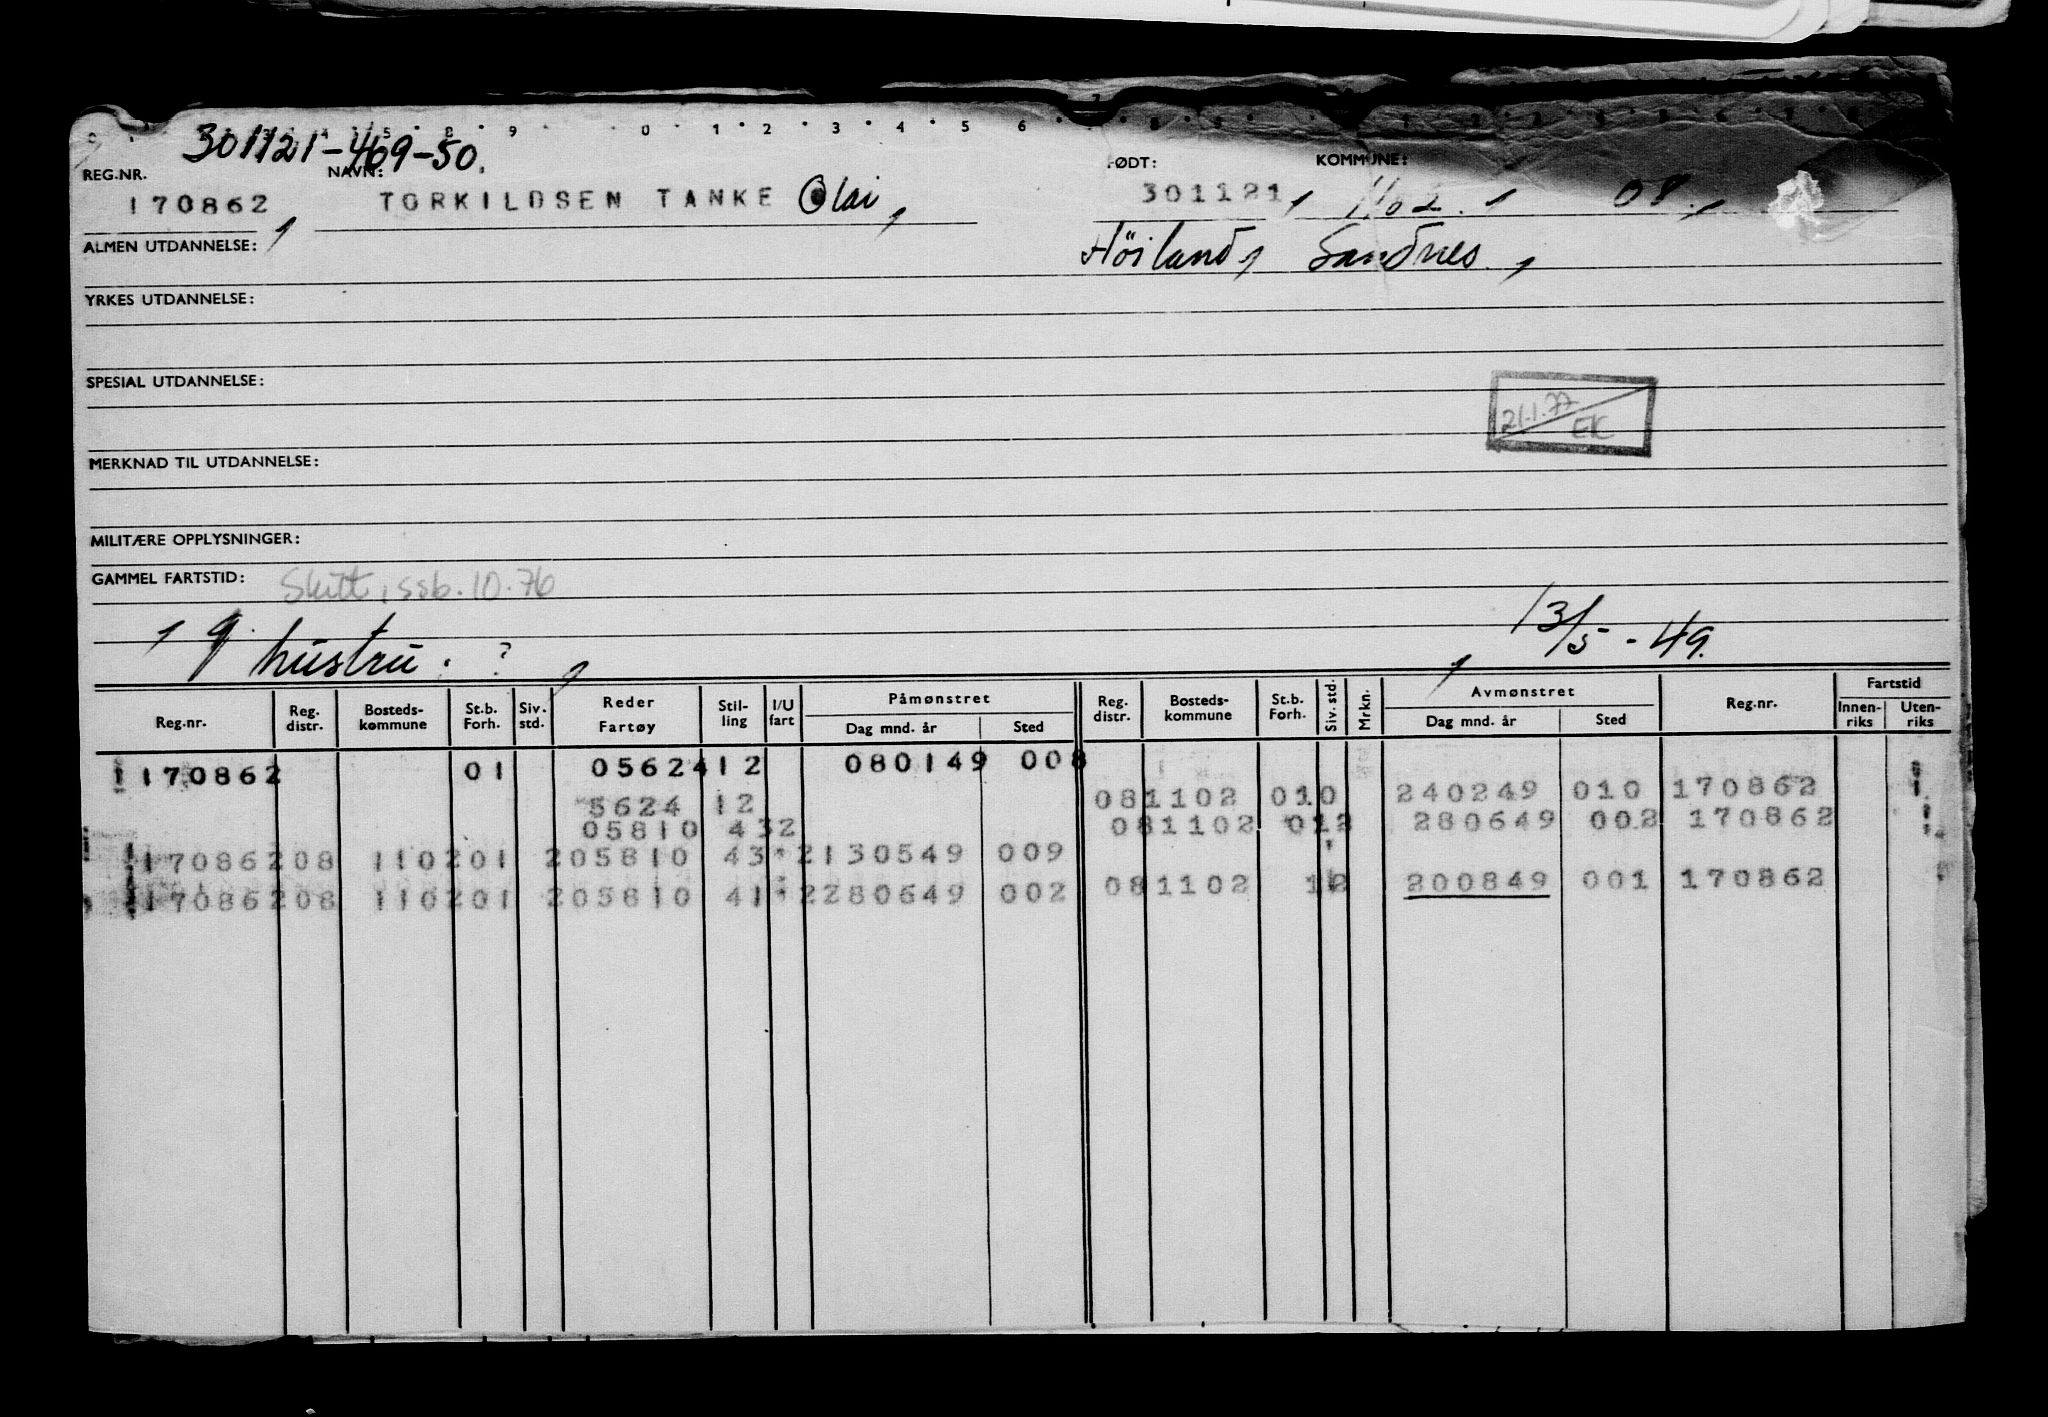 301121-469-50.
REG.NR. NAVN: FØDT: KOMMUNE:
170862 TORKILDSEN TANKE Olai, 301121, 1102. 08.
ALMEN UTDANNELSE: Höiland, Sandnes.
YRKES UTDANNELSE:
SPESIAL UTDANNELSE:
21.1.77 EK
MERKNAD TIL UTDANNELSE:
MILITÆRE OPPLYSNINGER:
GAMMEL FARTSTID: Slutt, ssb. 10.76
g hustru: ? 13/5-49.
Reg.nr. Reg. distr. Bosteds-kommune St.b. Forh. Siv. std. Reder Fartøy Stil-ling I/U fart Påmønstret Dag mnd. år Sted Reg. distr. Bosteds-kommune St.b. Forh. Siv. std. Mrkn. Avmønstret Dag mnd. år Sted Reg.nr. Fartstid Innen-riks Uten-riks
170862 01 05624 12 080149 008
5624 12 081102 010 240249 010 170862
05810 432 081102 012 280649 002 170862
170862 08 1102 01 2 05810 43 2 130549 009
170862 08 1102 01 2 05810 41 2 280649 002 081102 12 200849 001 170862